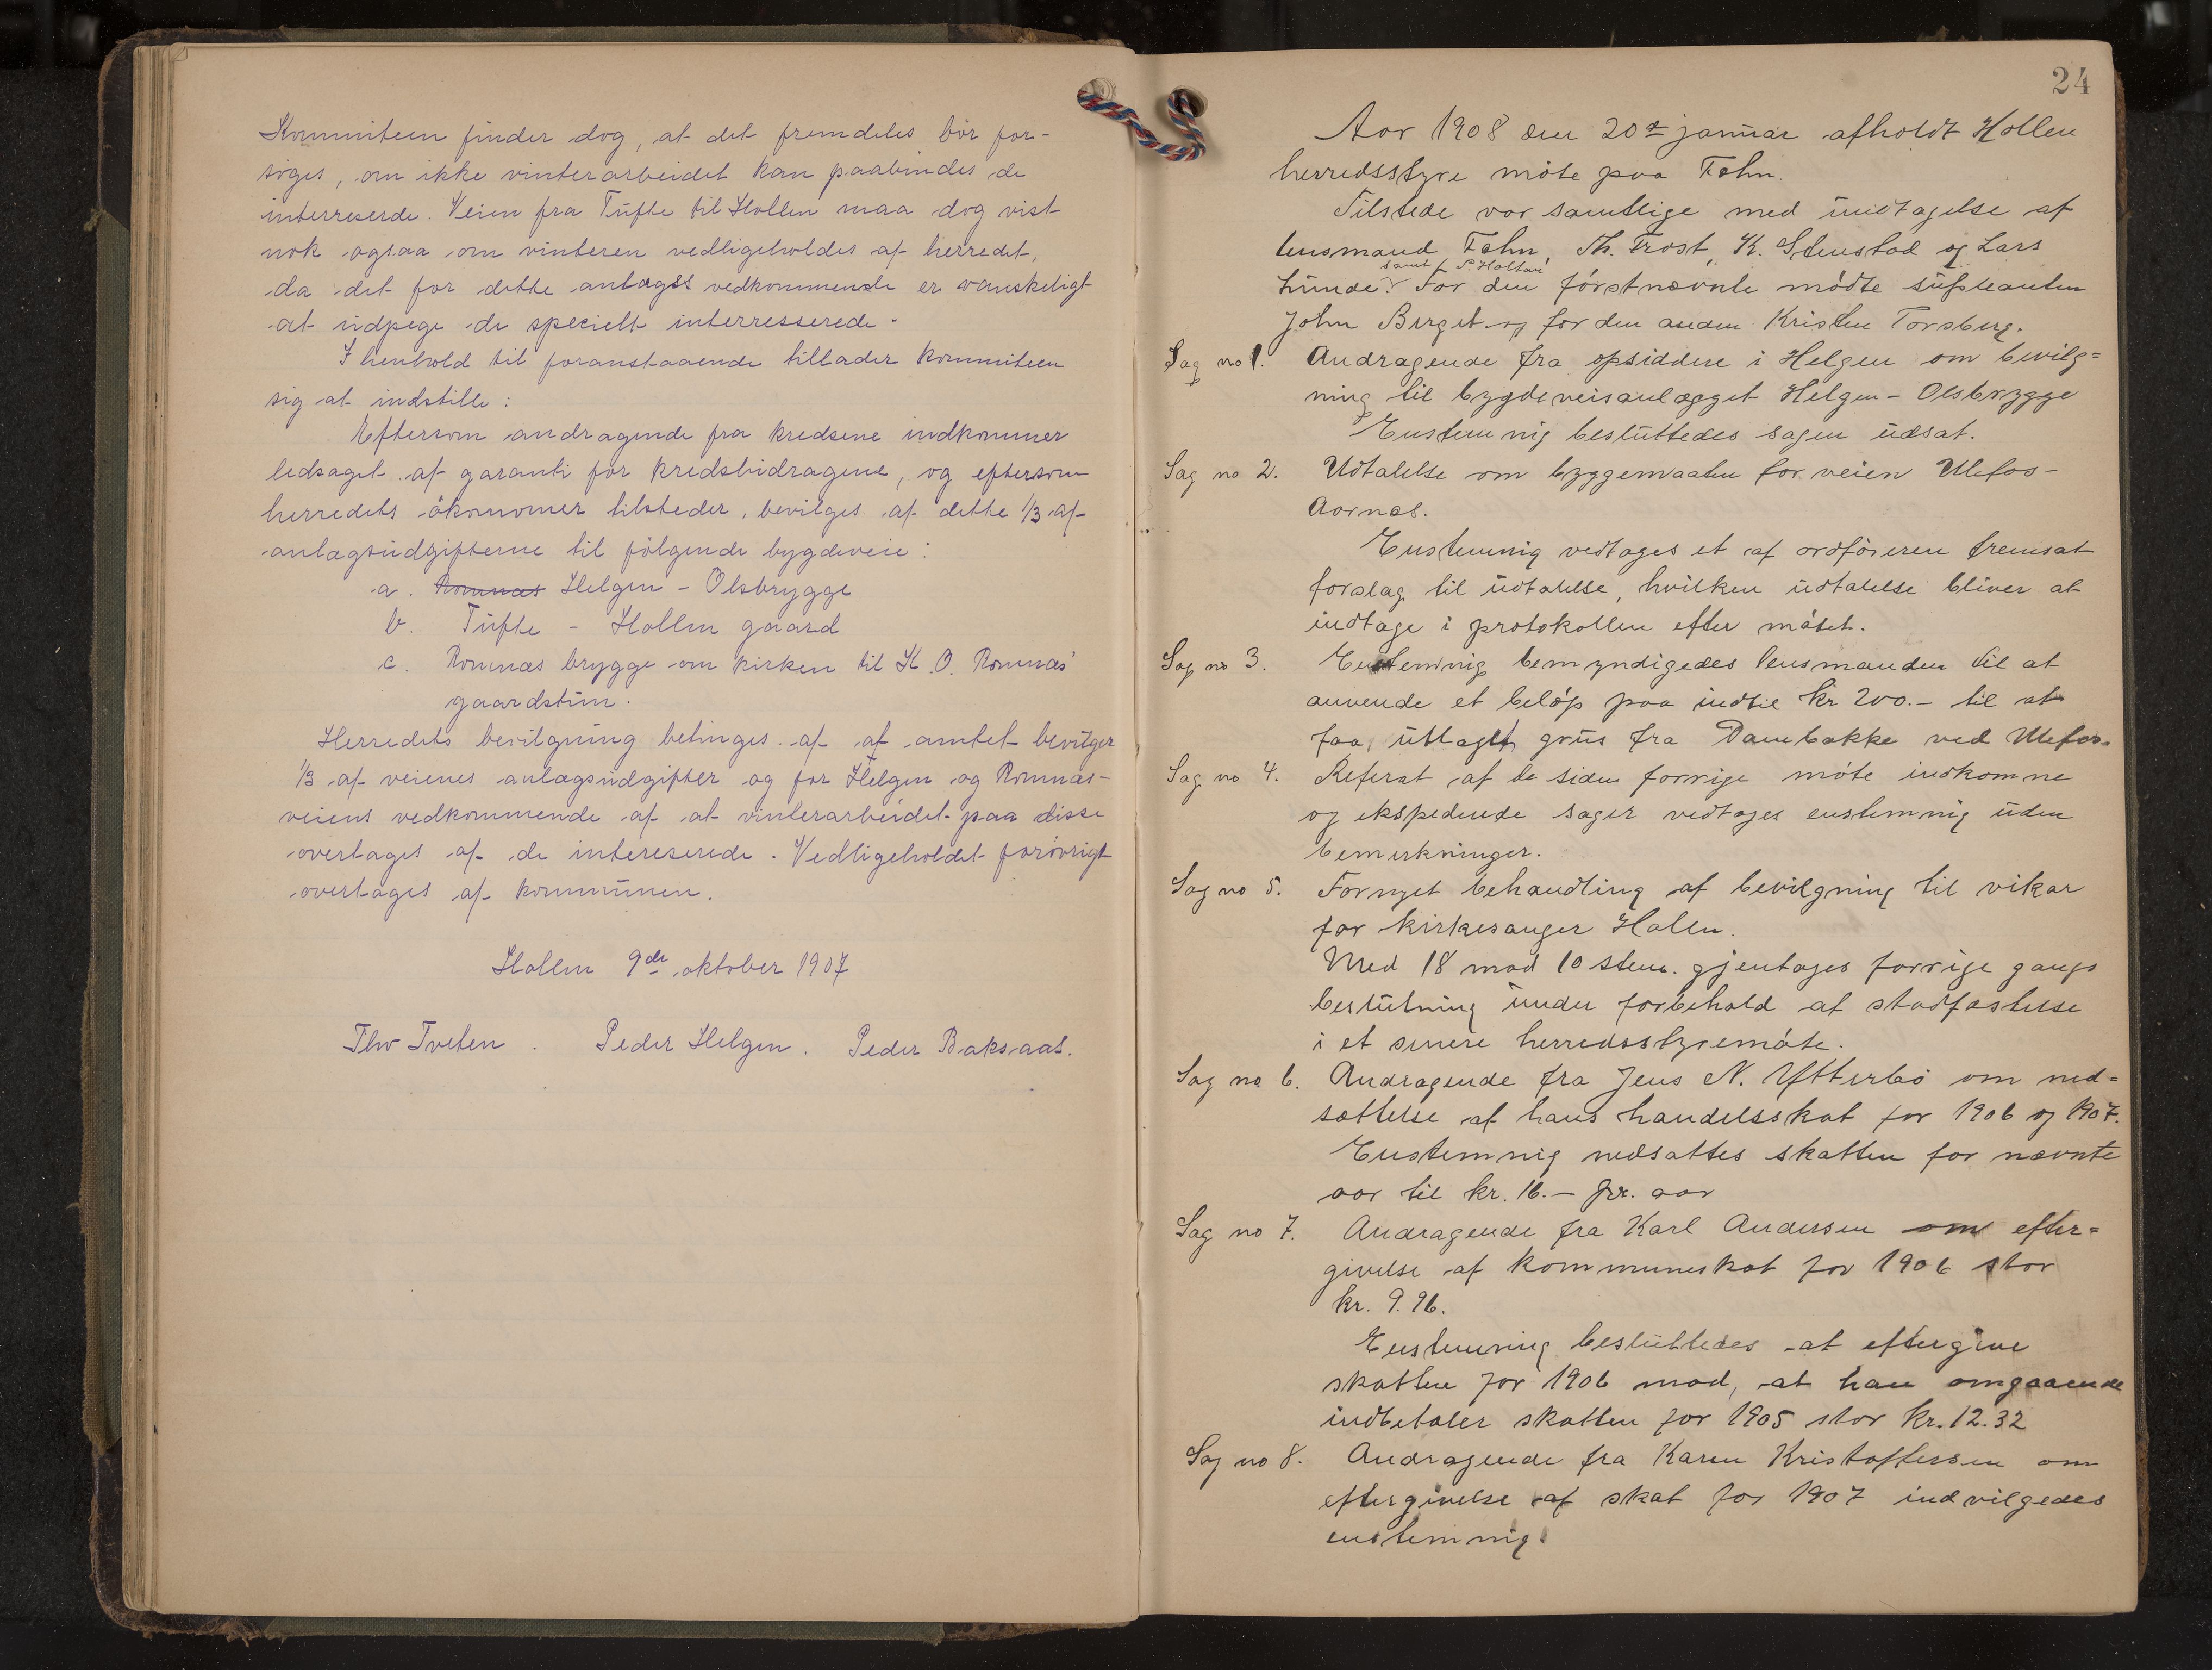 Kommiteen finder dog, at det fremdeles bör for-
söges, om ikke vinterarbeidet kan paabindes de
interreserde. Veien fra Tufte til Hollen maa dog vist
nok ogsaa om vinteren vedligeholdes af herredet,
da det for dette anlægs vedkommende er vanskeligt
at udpege de specielt interresserede.
I henhold til foranstaaende tillader kommiteen
sig at indstille:
Eftersom andragende fra kredsene indkommer
ledsaget af garanti for kredsbidragene, og eftersom
herredets ökonomer tilsteder, bevilges af dette 1/3 af
anlægsudgifterne til fölgende bygdeveie:
a. Romnæs Helgen - Olsbrygge
b. Tufte - Hollen gaard
c. Romnæs brygge om kirken til K. O. Romnæs'
gaardstun.
Herredets bevilgning betinges af at amtet bevilger
1/3 af veienes anlægsudgifter og for Helgen og Romnæs-
veiens vedkommende af at vinterarbeidet paa disse
overtages af de intereserede. Vedligeholdet forövrigt
overtages af kommunen.
Hollen 9de oktober 1907
Thv Tveten. Peder Helgen. Peder Baksaas.
24
Aar 1908 den 20de januar afholdt Hollen
herredsstyre möte paa Fehn.
Tilstede var samtlige med undtagelse af
lensmand Fehn, Th. Frost, K. Stenstad og Lars
samt P. Holtan
Lunde. For den förstnævnte mödte supleanten
John Berget og for den anden Kristen Torsberg.
Sag no 1. Andragende fra opsiddere i Helgen om bevilg=
ning til bygdeveisanlægget Helgen - Olsbrygge
Enstemnig besluttedes sagen udsat.
Sag no 2. Udtalelse om byggemaaten for veien Ulefos-
Aarnes.
Enstemnig vedtages et af ordföreren fremsat
forslag til udtalelse, hvilken udtalelse bliver at
indtage i protokollen efter mötet.
Sag no 3. Enstemnig bemyndigedes lensmanden til at
anvende et belöp paa indtil kr 200.- til at
faa utlagt grus fra Dambakke ved Ulefos.
Sag no 4. Referat af de siden forrige möte indkomne
og ekspederede sager vedtages enstemnig uden
bemerkninger.
Sag no 5. Fornyet behandling af bevilgning til vikar
for kirkesanger Halen.
Med 18 mod 10 stem. gjentages forrige gangs
beslutning under forbehold af stadfæstelse
i et senere herredsstyremöte.
Sag no 6. Andragende fra Jens N. Ytterbö om ned=
sættelse af hans handelsskat for 1906 og 1907.
Enstemnig nedsattes skatten for nævnte
aar til kr. 16.- pr. aar
Sag no 7. Andragende fra Karl Andersen om efter=
givelse af kommuneskat for 1906 stor
kr. 9.96.
Enstemnig besluttedes at eftergive
skatten for 1906 mod, at han omgaaende
indbetaler skatten for 1905 stor kr. 12.32
Sag no 8. Andragende fra Karen Kristoffersen om
eftergivelse af skat for 1907 indvilgedes
enstemnig.